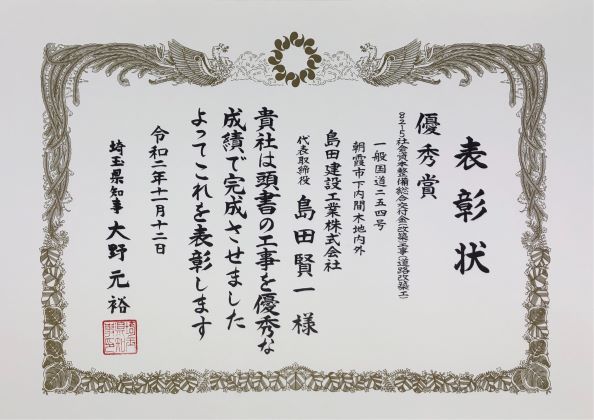 表彰状
優秀賞
8215社会資本整備総合交付金(改築)工事(道路改築工)
一般国道二五四号
朝霞市下内間木地内外
島田建設工業株式会社
代表取締役 島田賢一 様
貴社は頭書の工事を優秀な
成績で完成させました
よってこれを表彰します
令和二年十一月十二日
埼玉県知事 大野元裕